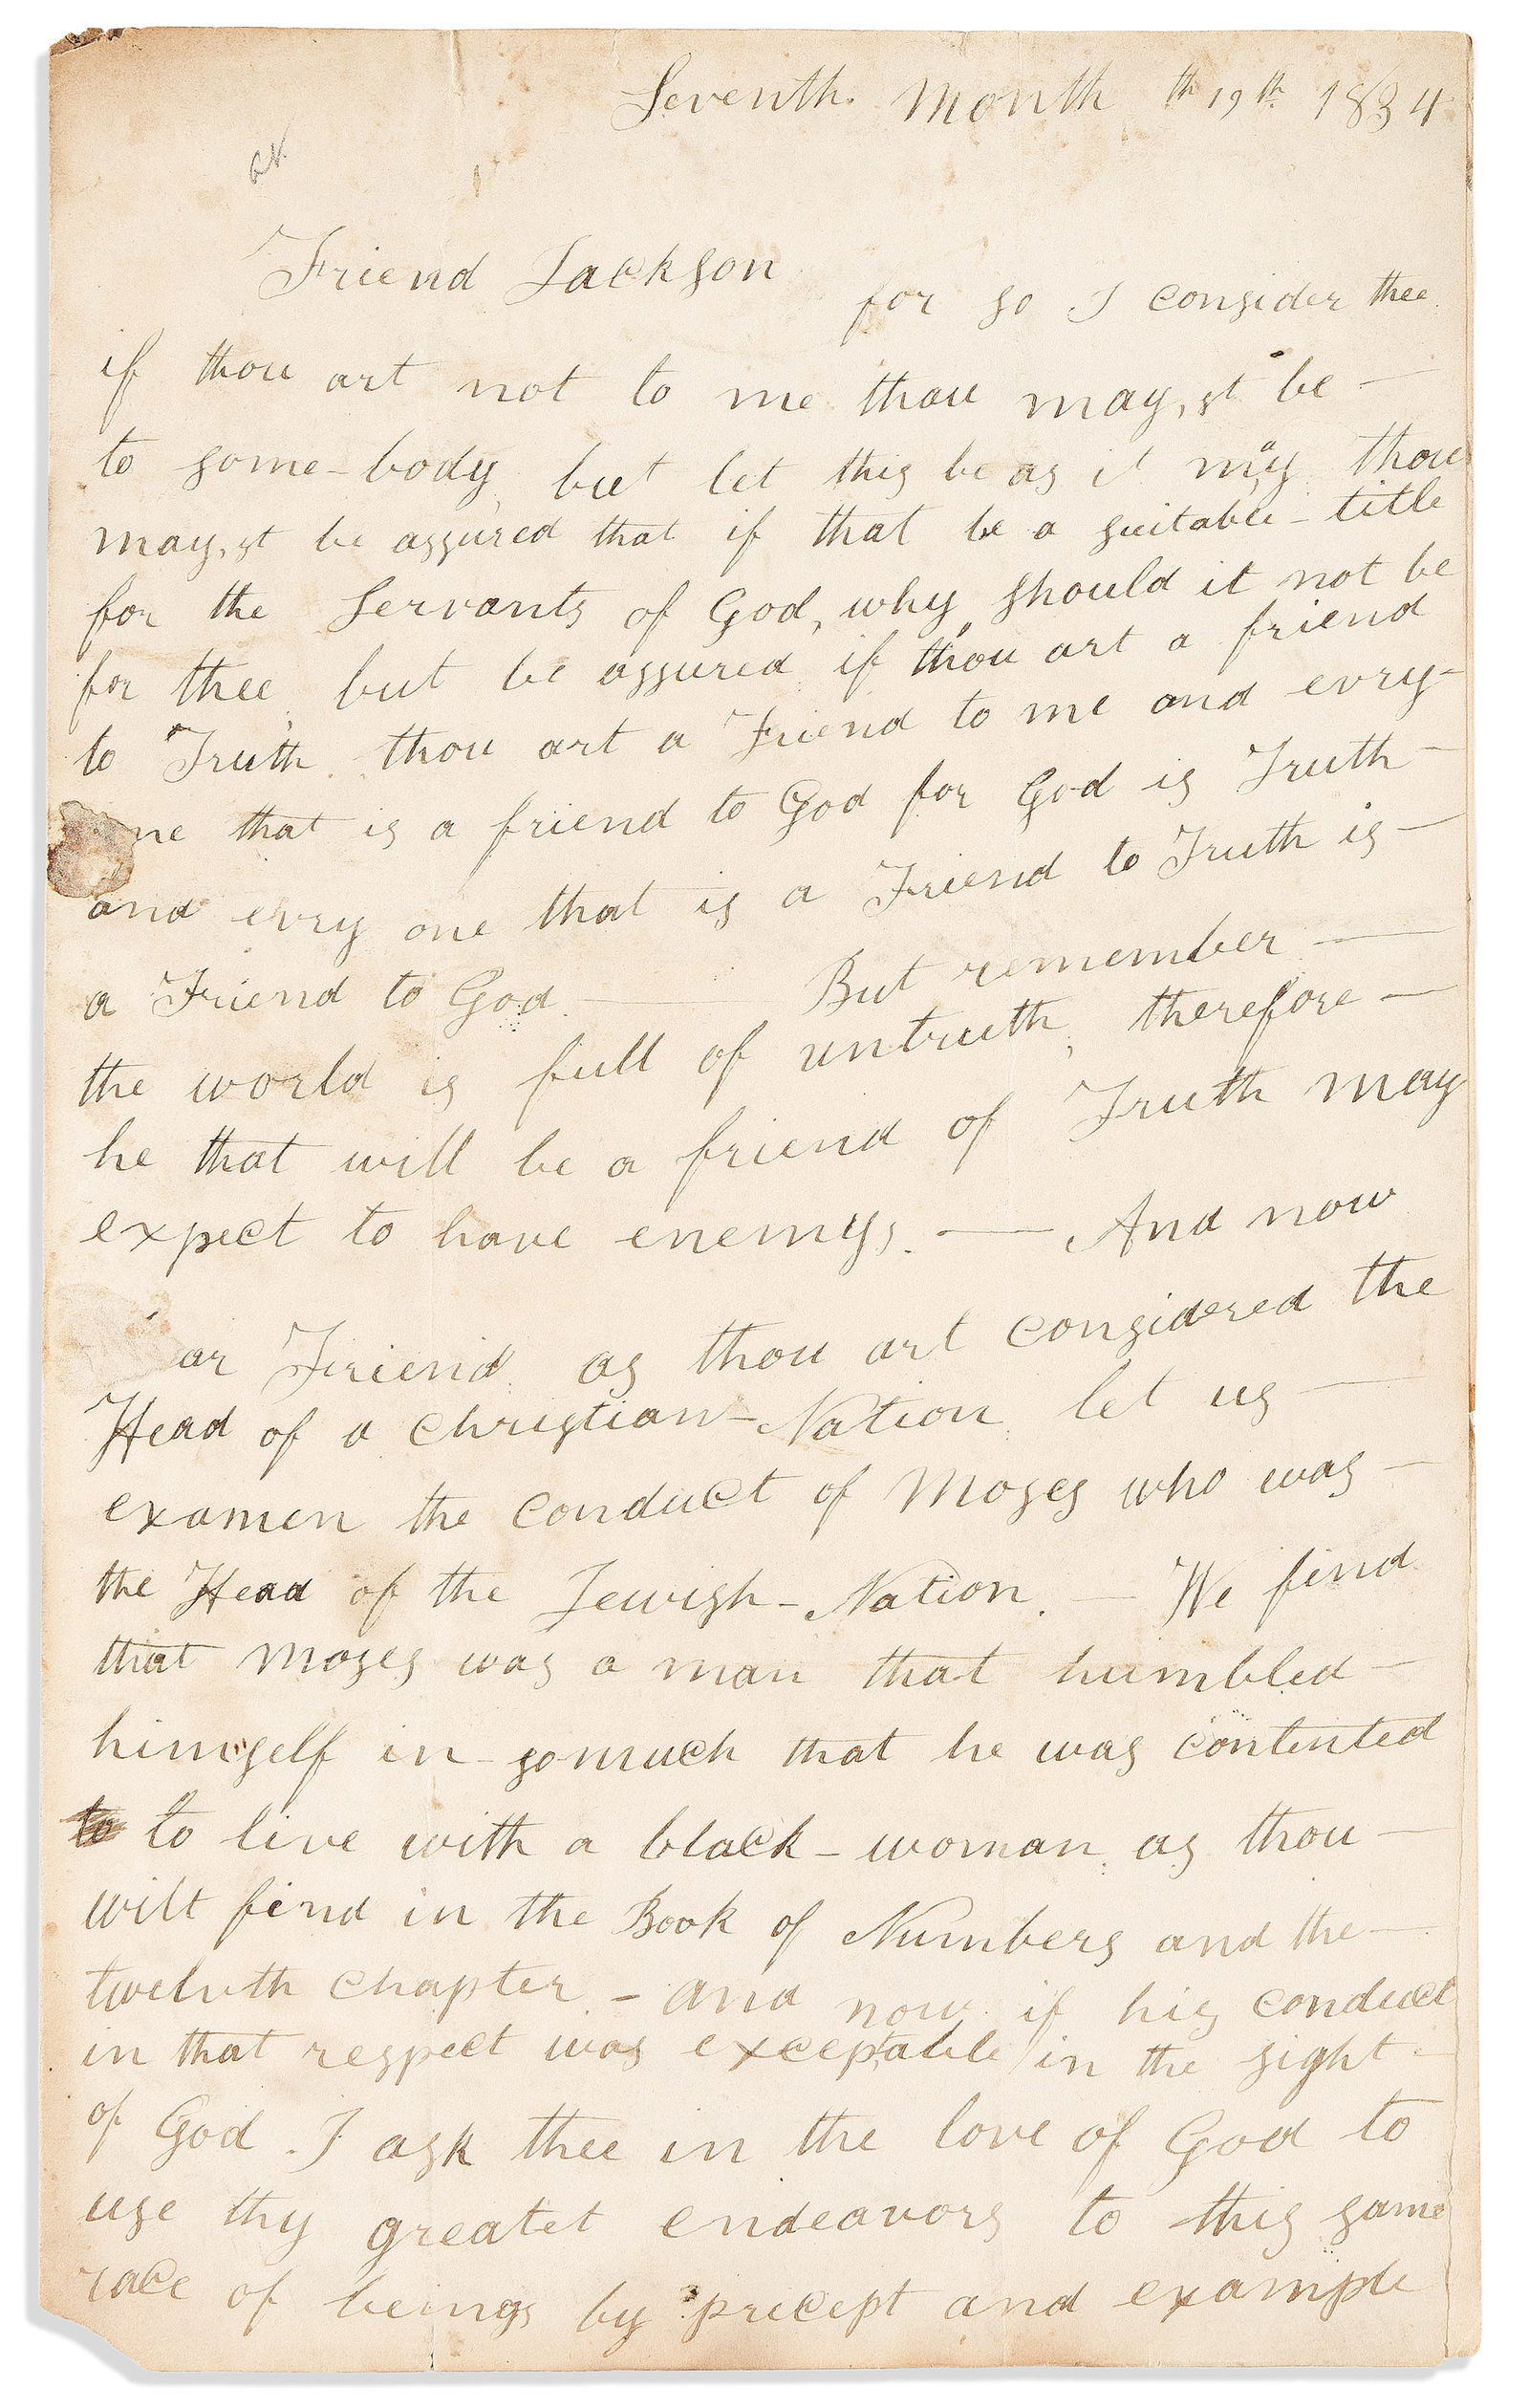 Seventh. Month th 19th. 1834
Friend Jackson
for so I consider thee
if thou art not to me thou may,st be —
to some-body, but let this be as it may thou
may,st be assured that if that be a suitable - title
for the Servants of God, why should it not be
for thee but be assured if thou art a friend
to Truth thou art a Friend to me and evry-
one that is a friend to God for God is Truth —
and evry one that is a Friend to Truth is —
a Friend to God. — But remember —
the world is full of untruth, therefore —
he that will be a friend of Truth may
expect to have enemys. — And now
ar Friend as thou art considered the
Head of a Christian - Nation let us —
examen the conduct of Moses who was —
the Head of the Jewish - Nation. — We find
that Moses was a man that humbled —
himself in - somuch that he was contented
to to live with a black - woman, as thou —
wilt find in the Book of Numbers and the —
twelvth chapter - and now if his conduct
in that respect was exceptable in the sight -
of God. I ask thee in the love of God to
use thy greatet endeavors to this same
race of beings by precept and example